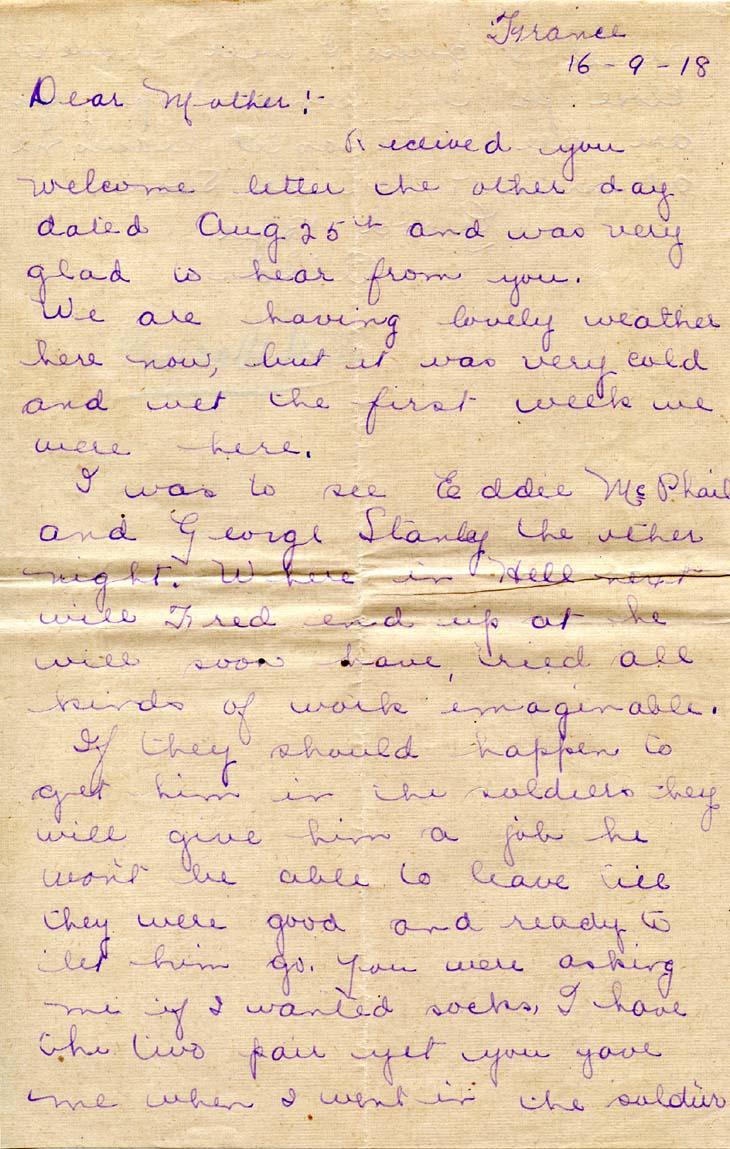 France
16-9-18
Dear Mother!-
Recieved you
welcome letter the other day
dated Aug 25th and was very
glad to hear from you.
We are having lovely weather
here now, but it was very cold
and wet the first week we
were here.
I was to see Eddie McPhail
and George Stanly the other
night. Where in Hell next
will Fred end up at he
will soon have tried all
kinds of work imaginable.
If they should happen to
get him in the soldiers they
will give him a job he
won't be able to leave till
they were good and ready to
let him go. You were asking
me if I wanted socks, I have
the two pair yet you gave
me when I went in the soldier